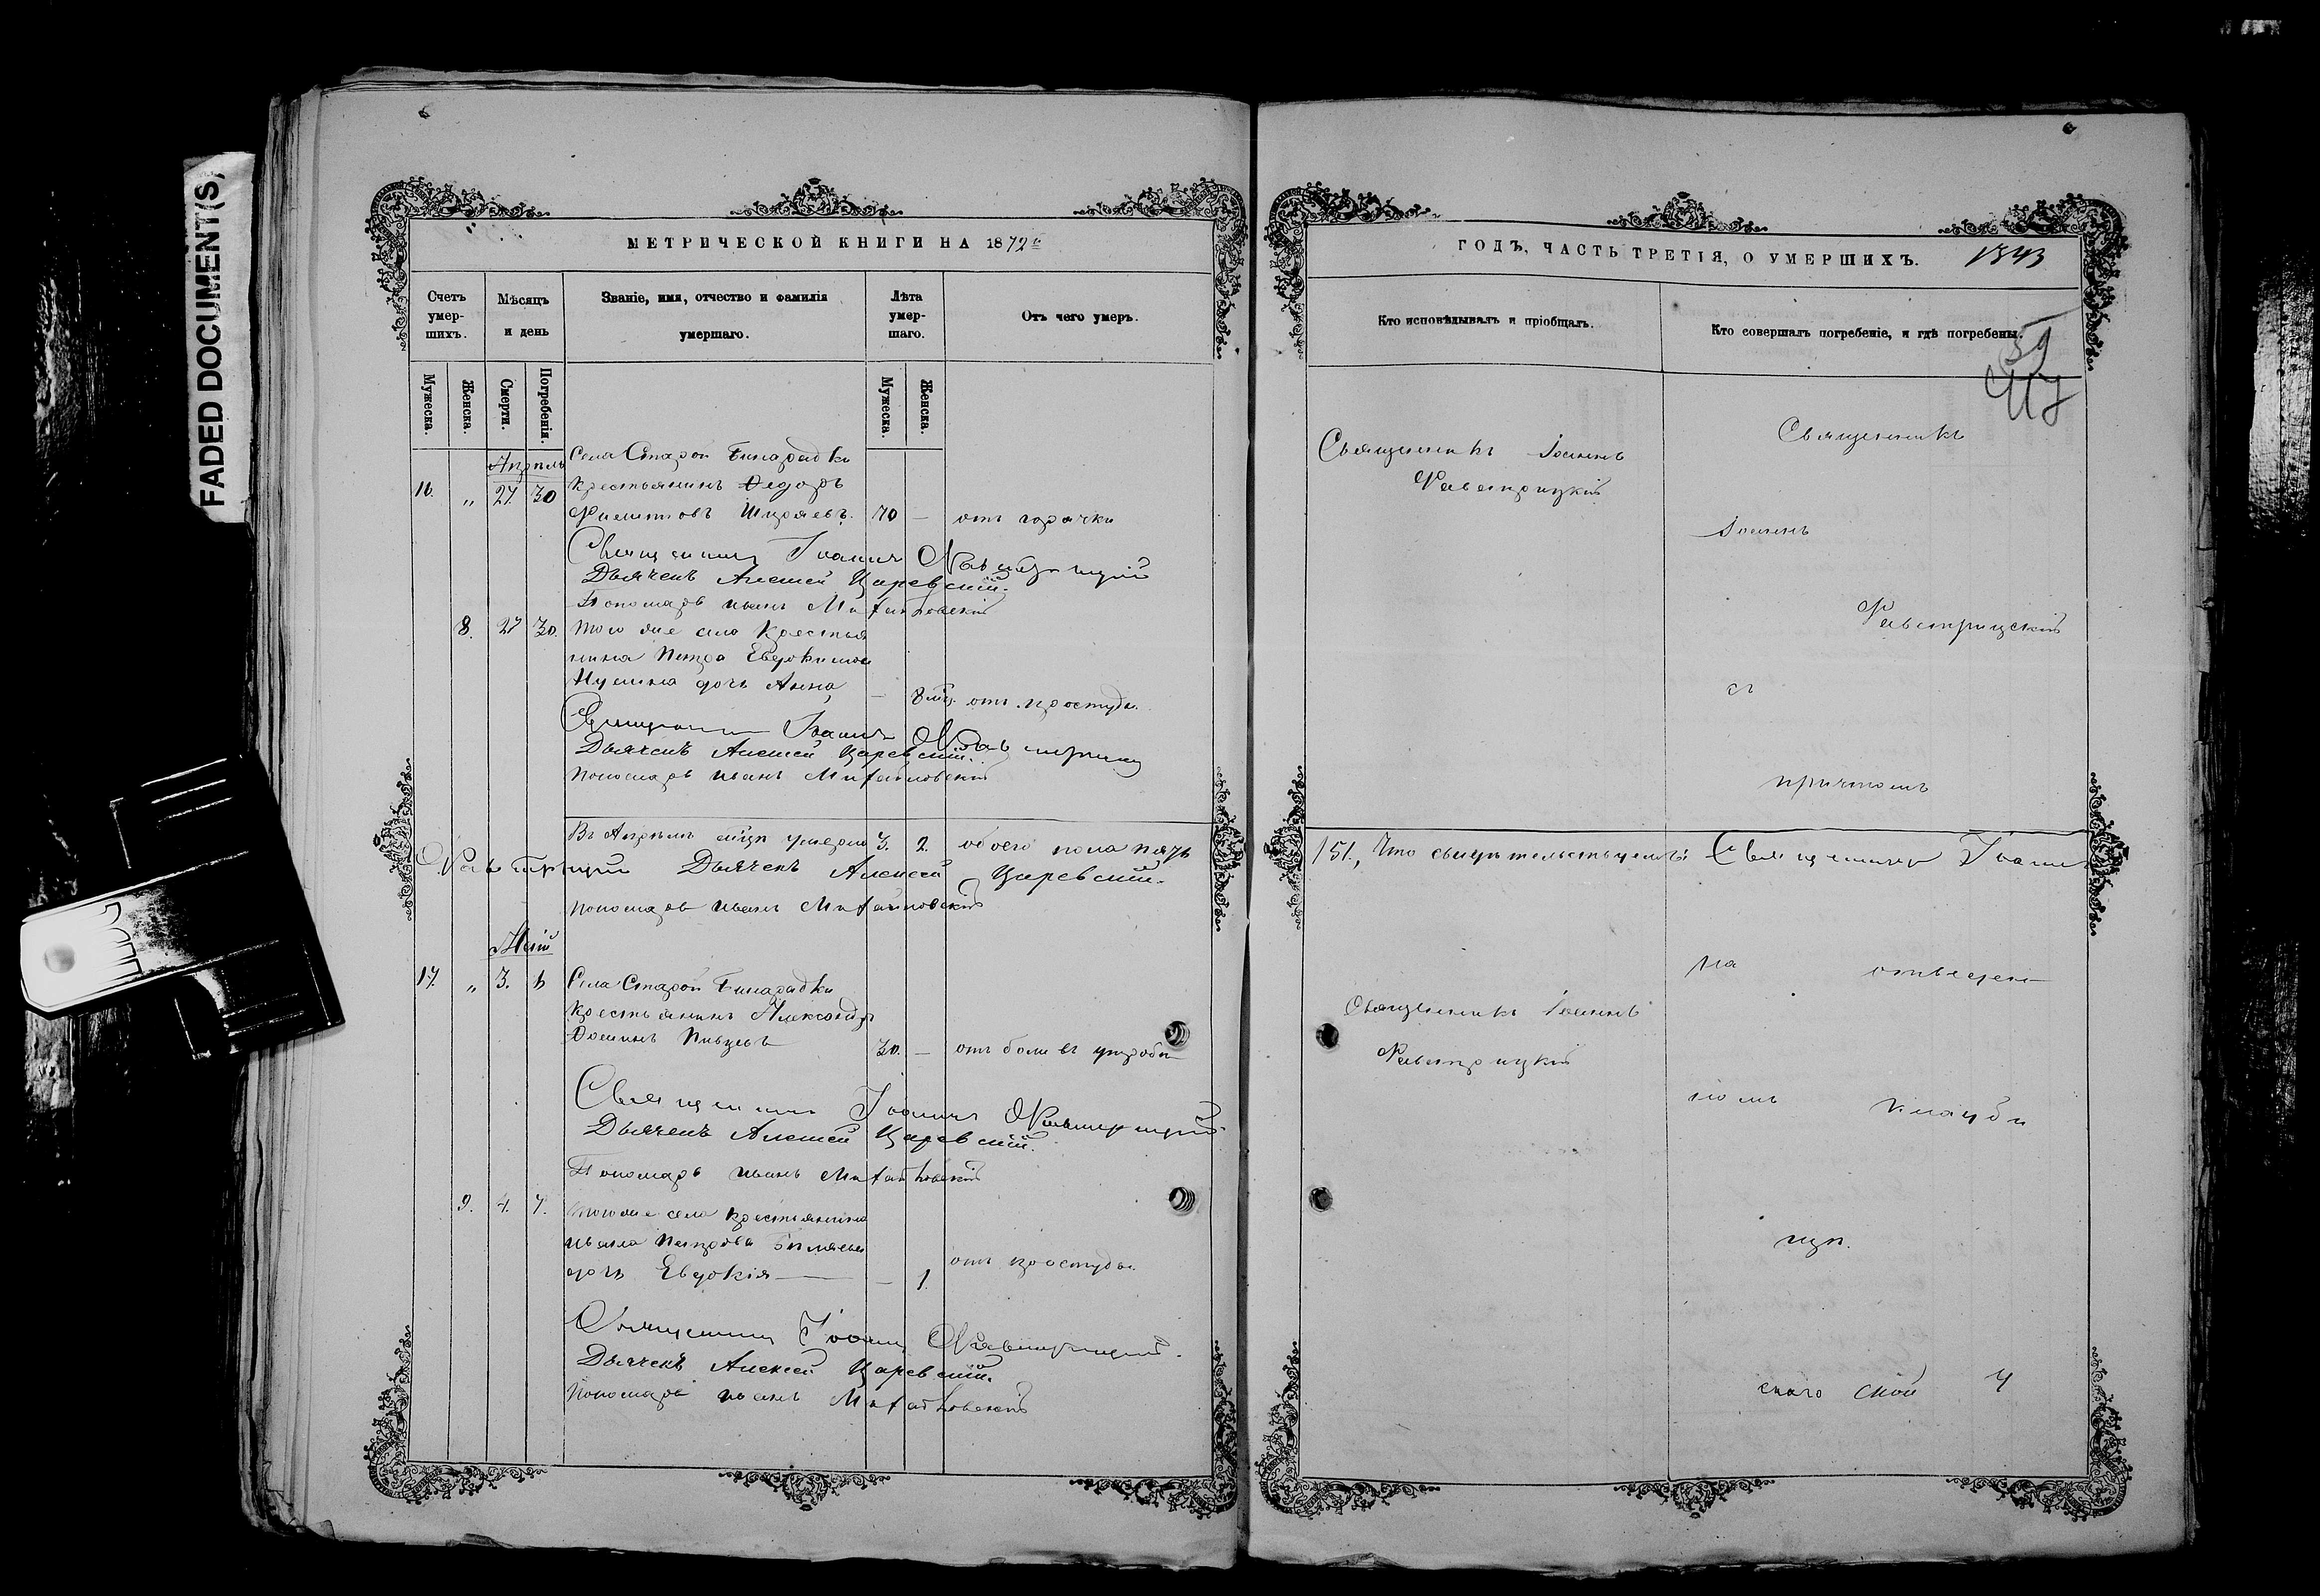 FADED DOCUMENT(S)
МЕТРИЧЕСКОЙ КНИГИ НА 1872й
Счетъ умер-шихъ.
Мѣсяцъ и день
Званіе, имя, отчество и фамилія умершаго.
Лѣта умер-шаго.
Отъ чего умеръ.
Мужеска.
Женска.
Смерти.
Погребенія.
Мужеска.
Женска.
Апрѣль
Села Старой Бинарадки
16. „ 27. 30 крестьянинъ Ѳедоръ
Филиповъ Ширяевъ. 70 — отъ горячки
Священникъ Іоаннъ
Дьячекъ Алексѣй Царевскій.
Пономарь Иванъ Михайловскій
8. 27 30. того же села крестья
нина Петра Евдокимова
дочь Анна, — 8 мц. отъ простуды.
Священникъ Іоаннъ
Дьячекъ Алексѣй Царевскій.
Пономарь Иванъ Михайловскій
Въ Апрѣлѣ мцѣ умерло 3. 2. обоего пола пять
Дьячекъ Алексѣй Царевскій.
Пономарь Иванъ Михайловскій
Май
17. „ 3. 6 Села Старой Бинарадки
крестьянинъ Александръ
Ѳоминъ Пивцевъ 30. — отъ боли въ утробѣ
Священникъ Іоаннъ
Дьячекъ Алексѣй Царевскій.
Пономарь Иванъ Михайловскій
9. 4. 7. того же села крестьянина
Ивана Петрова
дочь Евдокія — — 1. отъ простуды.
Священникъ Іоаннъ
Дьячекъ Алексѣй Царевскій.
Пономарь Иванъ Михайловскій
ГОДЪ, ЧАСТЬ ТРЕТІЯ, О УМЕРШИХЪ. 1343
Кто исповѣдывалъ и пріобщалъ.
Кто совершалъ погребеніе, и гдѣ погребены.
59
417
Священникъ Іоаннъ
Священникъ
Іоаннъ
съ
причтомъ
/5/., Что свидѣтельствуемъ: Священникъ Іоаннъ
на отведен
Священникъ Іоаннъ
номъ кладби
щѣ.